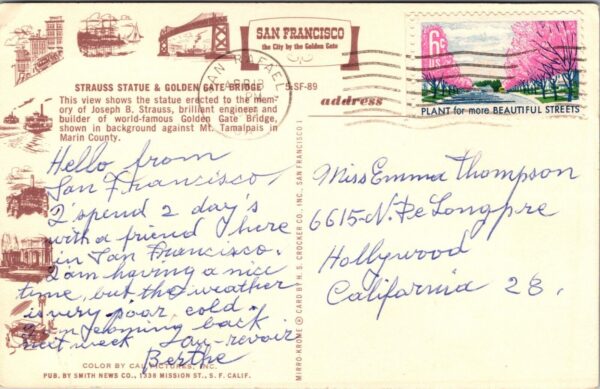 SAN FRANCISCO
the City by the Golden Gate
STRAUSS STATUE & GOLDEN GATE BRIDGE
5-SF-89
This view shows the statue erected to the mem-
ory of Joseph B. Strauss, brilliant engineer and
builder of world-famous Golden Gate Bridge,
shown in background against Mt. Tamalpais in
Marin County.
Hello from
San Francisco,
I spend 2 day's
with a friend here
in San Francisco.
I am having a nice
time, but the weather
is very poor, cold.
I am coming back
next week Au-revoir
Berthe
COLOR BY CAL PICTURES, INC.
PUB. BY SMITH NEWS CO., 1338 MISSION ST., S. F. CALIF.
MIRRO-KROME ® CARD BY H. S. CROCKER CO., INC., SAN FRANCISCO 1
SAN RAFAEL
address
6c
US
PLANT for more BEAUTIFUL STREETS
Miss Emma Thompson
6615-N. De Longpre
Hollywood
California 28.